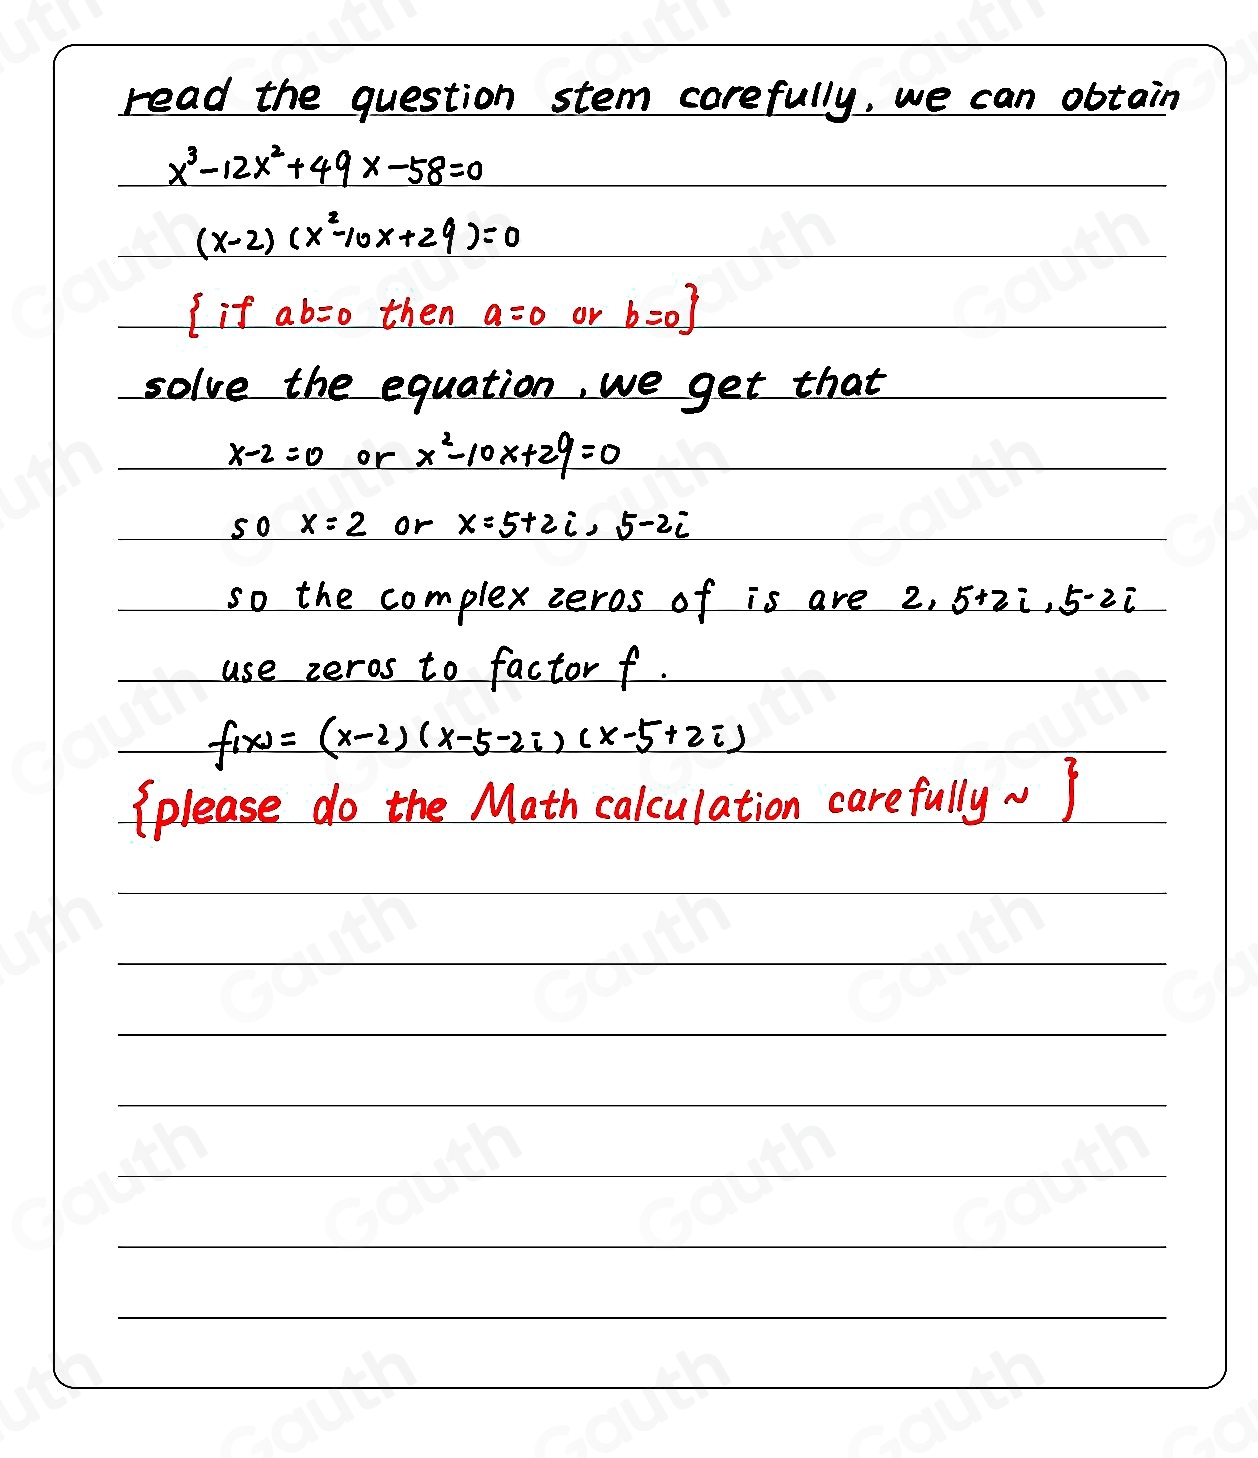 read the question stem carefully, we can obtain
x³-12x²+49x-58=0
(x-2)(x²-10x+29)=0
{if ab=0 then a=0 or b=0}
solve the equation, we get that
x-2=0 or x²-10x+29=0
so x=2 or x=5+2i, 5-2i
so the complex zeros of is are 2, 5+2i, 5-2i
use zeros to factor f.
f(x)= (x-2)(x-5-2i)(x-5+2i)
{please do the Math calculation carefully~}